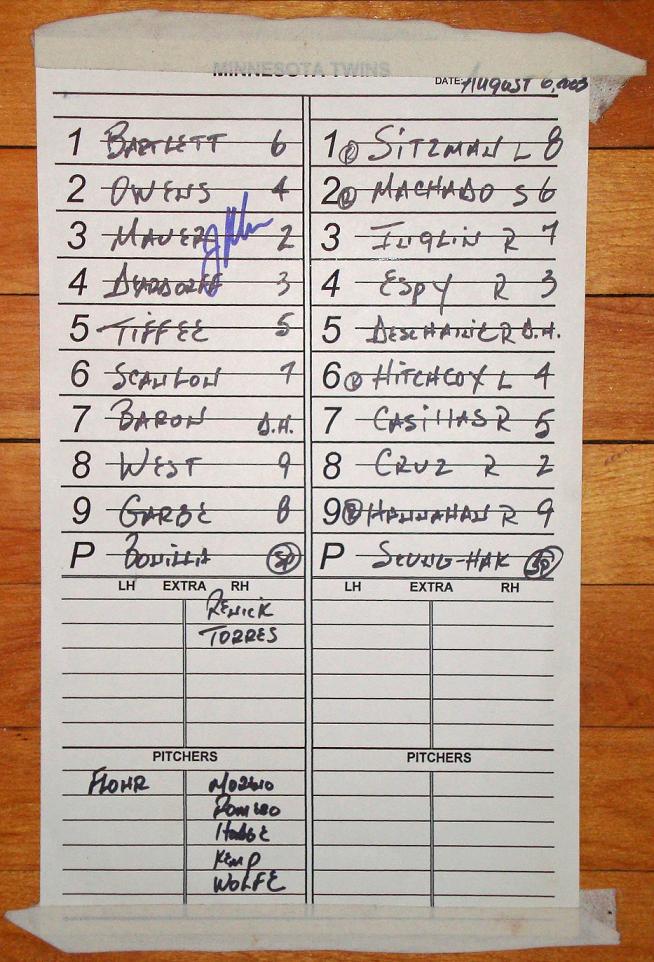 MINNESOTA TWINS
DATE: AUGUST 6, 2003
1 BARTLETT 6
2 OWENS 4
3 MAUER 2
4 DEARDORFF 3
5 TIFFEE 5
6 SCANLON 7
7 BARON D.H.
8 WEST 9
9 GARBE 8
P BONILLA SP
LH EXTRA RH
RENICK
TORRES
PITCHERS
FLOHR MORENO
ROMERO
HABBE
KEMP
WOLFE
1 R SITZMAN L 8
2 R MACHADO S 6
3 INGLIN R 7
4 ESPY R 3
5 DESCHAINE R D.H.
6 R HITCHCOX L 4
7 CASILLAS R 5
8 CRUZ R 2
9 R HANNAHAN R 9
P SEUNG-HAK SP
LH EXTRA RH
PITCHERS